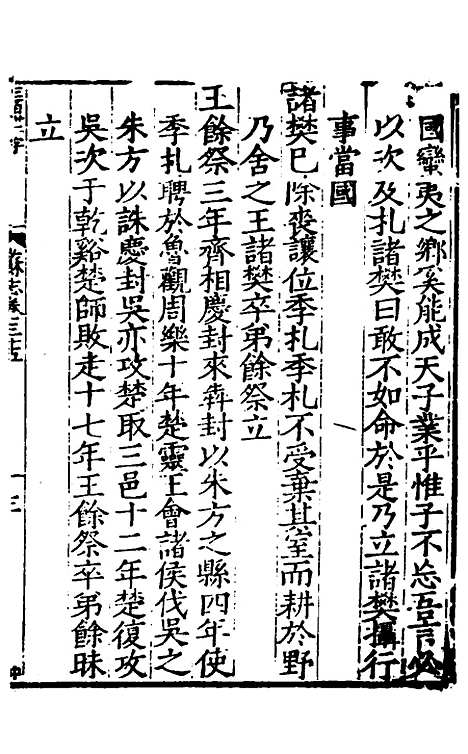 國蠻夷之鄉奚能成天子業乎惟子不忘吾言必
以次及扎諸樊曰敢不如命於是乃立諸樊攝行
事當國
諸樊已除喪讓位季扎季札不受棄其室而耕於野
乃舍之王諸樊卒弟餘祭立
王餘祭三年齊相慶封來犇封以朱方之縣四年使
季扎聘於魯觀周樂十年楚靈王會諸侯伐吳之
朱方以誅慶封吳亦攻楚取三邑十二年楚復攻
吳次于乾谿楚師敗走十七年王餘祭卒弟餘昧
立
蘇志卷三十五
三